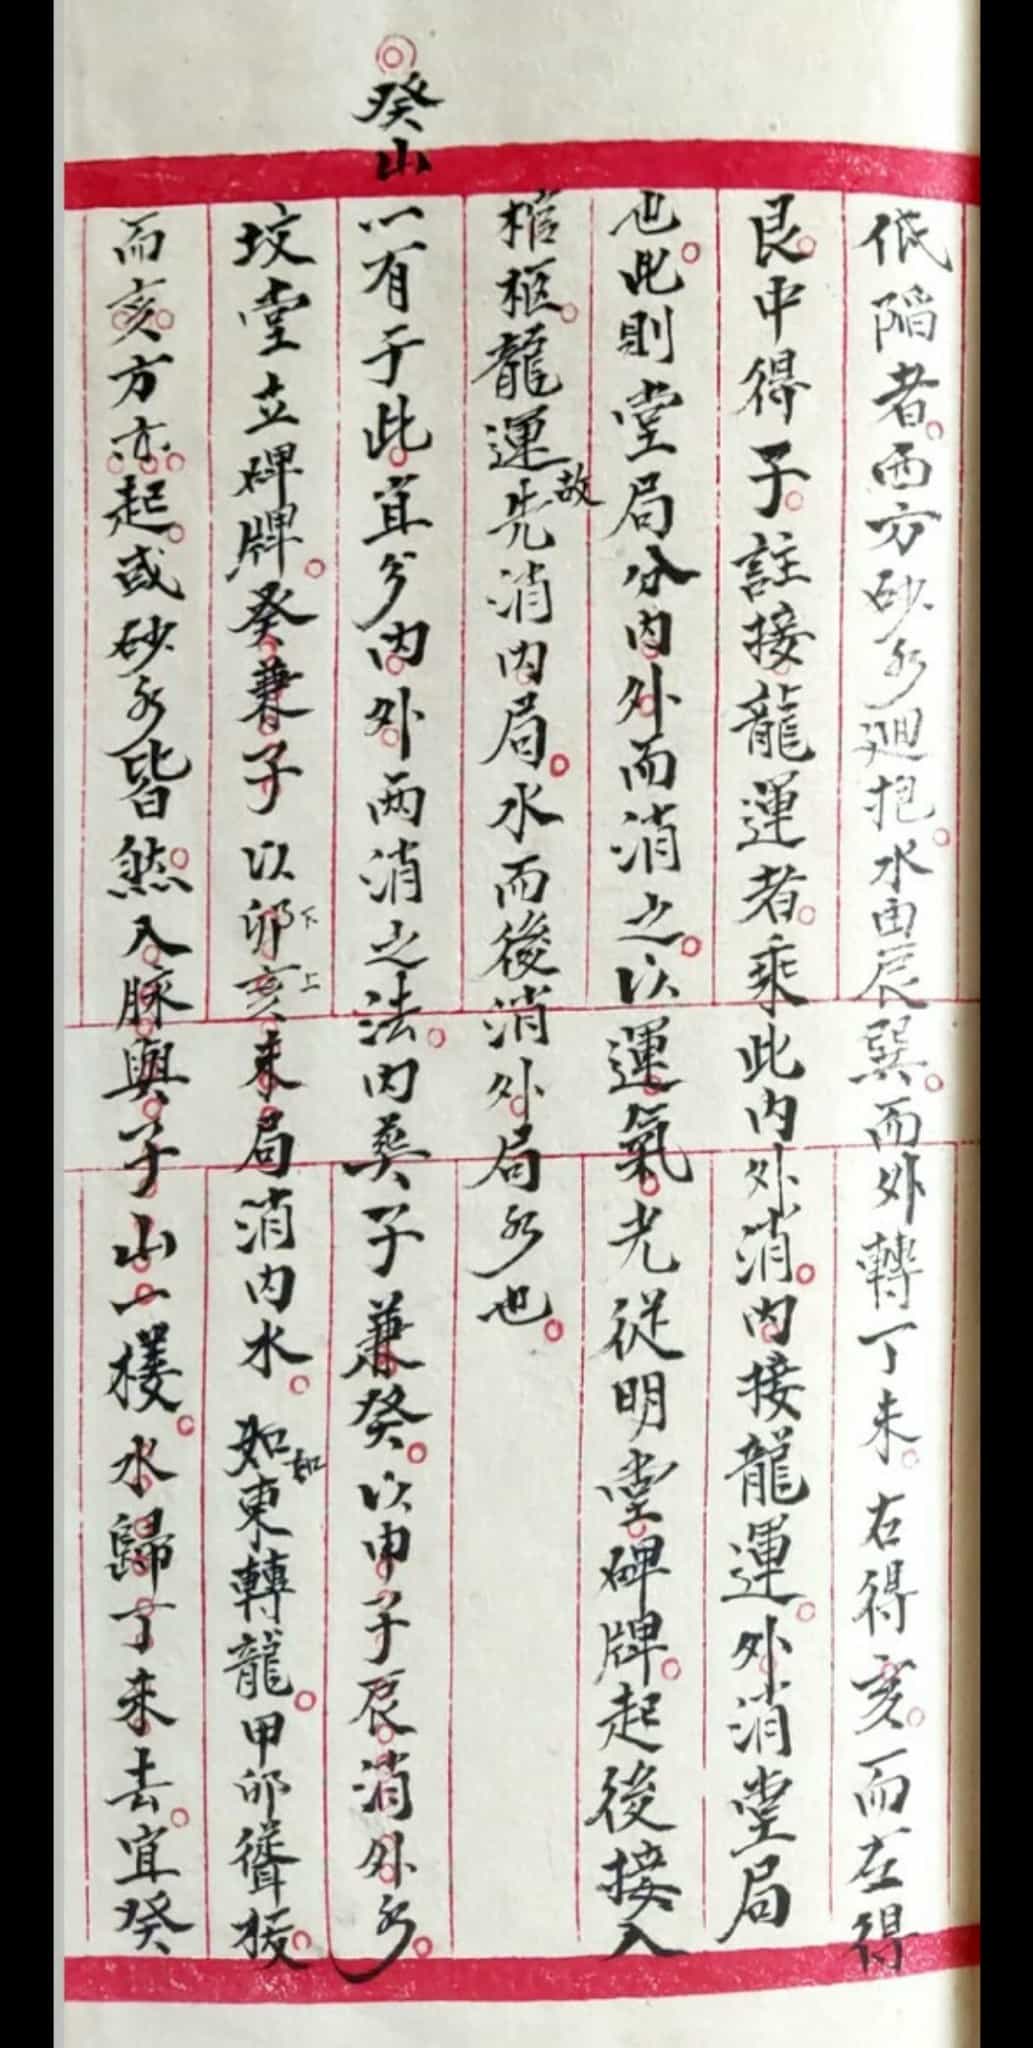 低陷者。西方砂水廻抱。水由辰巽。而外轉丁未。右得亥。而左得
艮。中得子。註接龍運者。乘此內外消。內接龍運。外消堂局
也。此則堂局分內外而消之。以運氣先從明堂碑牌。起後接入
棺柩。龍運故先消內局。水而後消外局水也。
癸山
一有于此。宜分內外兩消之法。內葬子兼癸。以申子辰消外水。
坟堂立碑牌。癸兼子以卯下亥上未局消內水。如如東轉龍。甲卯聳拔。
而亥方亦起。或砂水皆然。入脉與子山一樣。水歸丁未去。宜癸